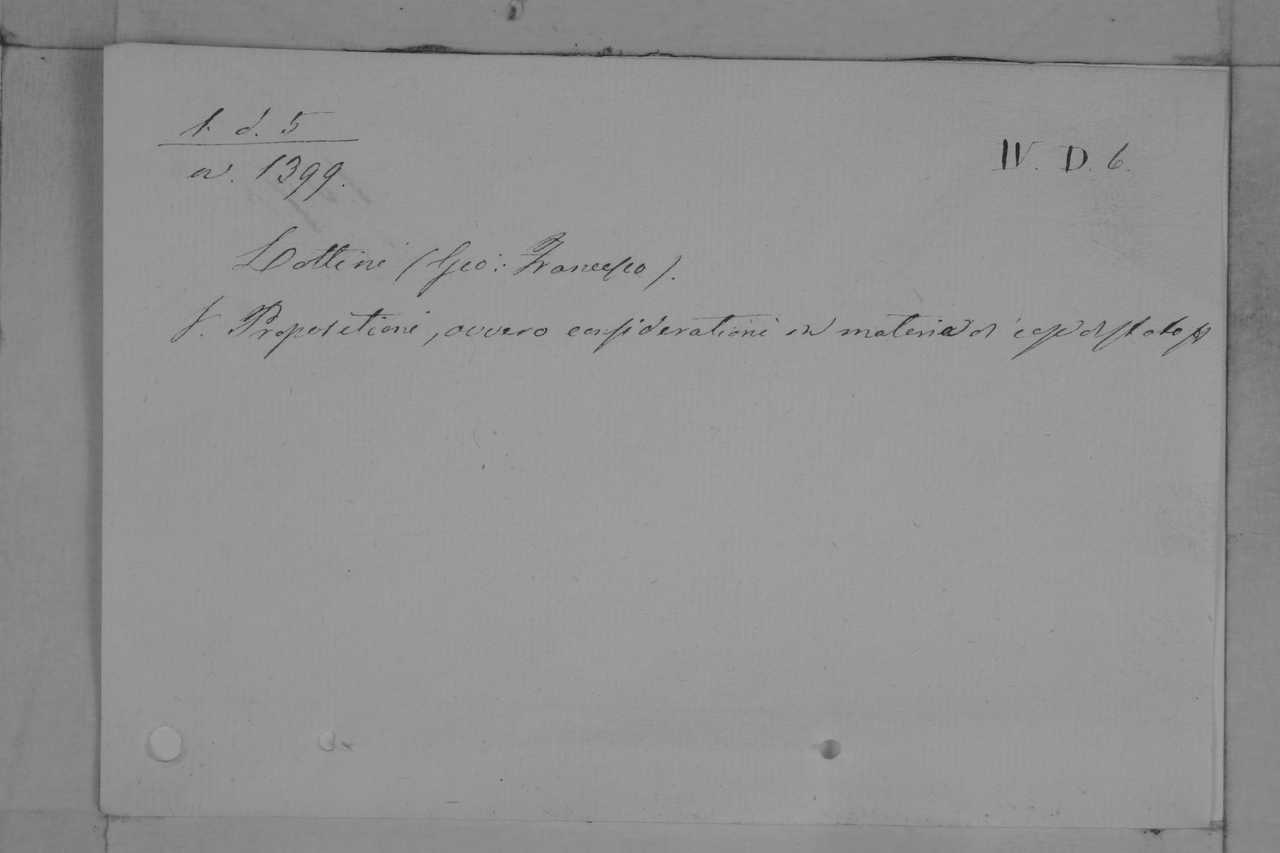 1. d. 5
IV. D. 6.
a. 1399.
Lottini (Gio: Francesco).
V. Propositioni, ovvero considerationi in materia di cose di stato